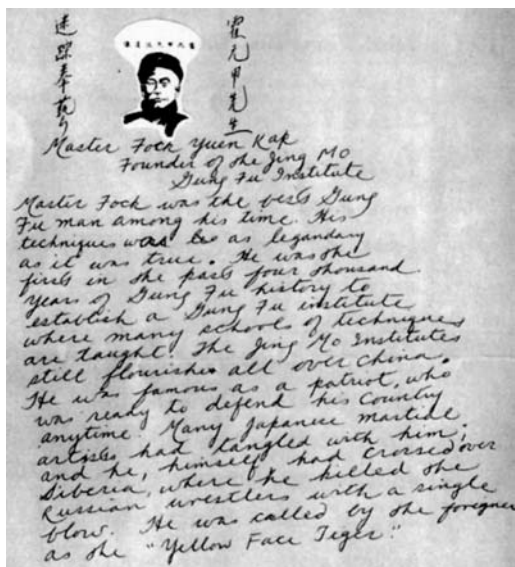 霍元甲先生
Master Fock Yuen Kap
Founder of the Jing Mo
Gung Fu Institute
Master Fock was the best Gung
Fu man among his time. His
technique was as legandary
as it was true. He was the
first in the past four thousand
years of Gung Fu history to
establish a Gung Fu institute
where many schools of techniques
are taught. The Jing Mo Institutes
still flourishes all over China.
He was famous as a patriot, who
was ready to defend his Country
anytime. Many Japanese martial
artists had tangled with him,
and he, himself, had crossed over
Siberia, where he killed the
Russian wrestlers with a single
blow. He was called by the foreigner
as the "Yellow Face Tiger."